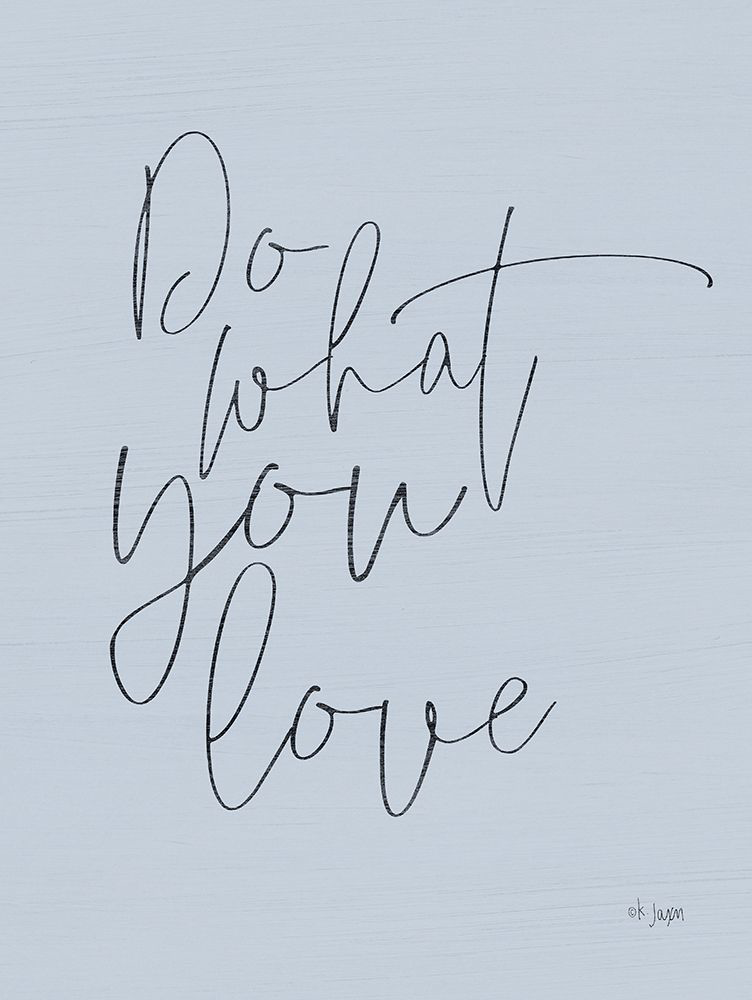 Do
what
you
love
©K. Jaxn